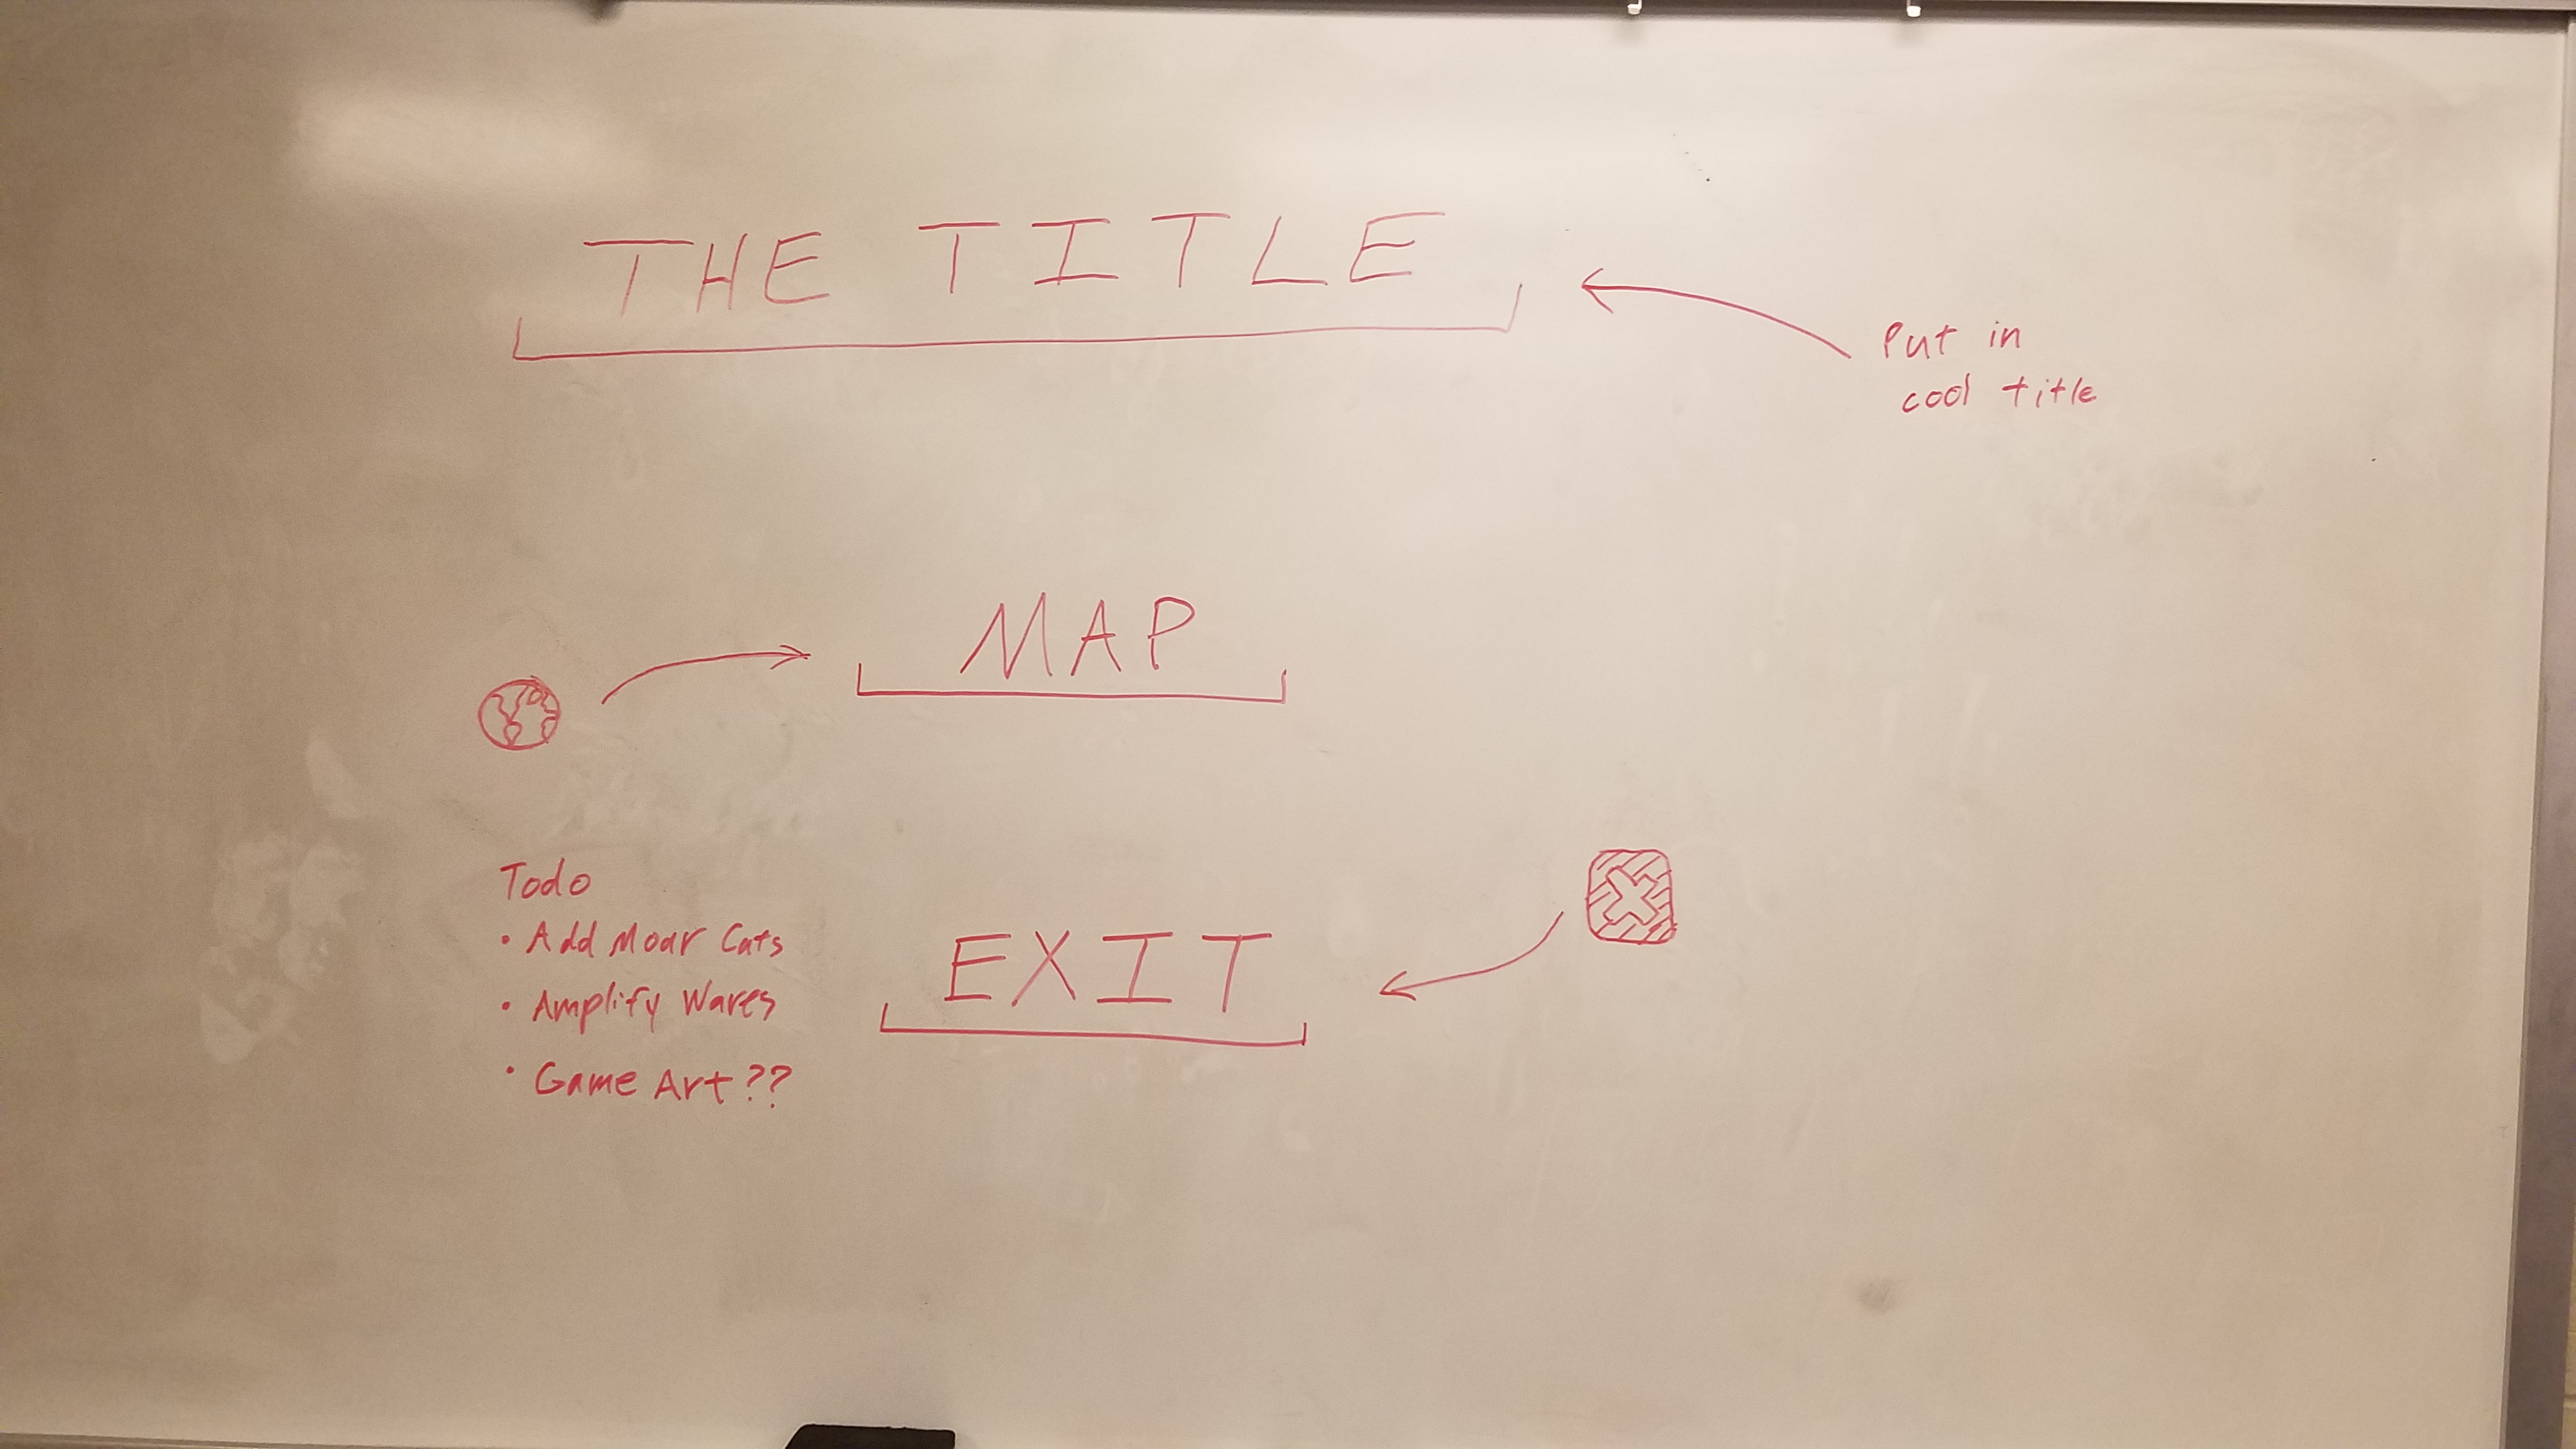 THE TITLE
Put in
cool title
MAP
Todo
• Add Moar Cats
• Amplify Waves
• Game Art??
EXIT